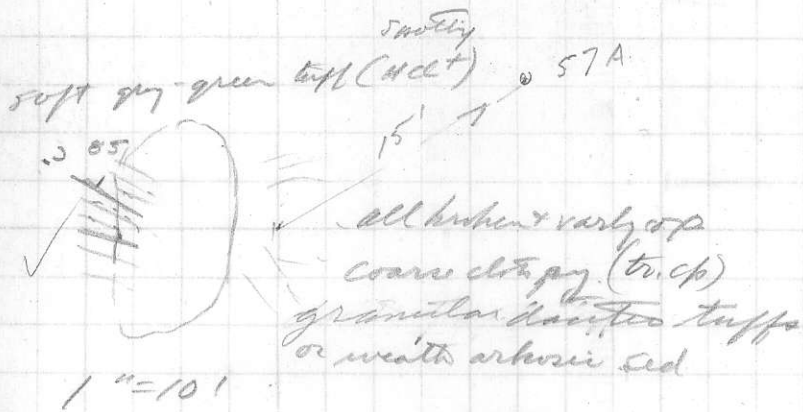 spotty
soft gry-green tuff (HCl+)
57A
15'
.3 85
all broken & varly ox
coarse diss py. (tr. cp)
granular dacitic tuffs
or weath arkosic sed
1"=10'